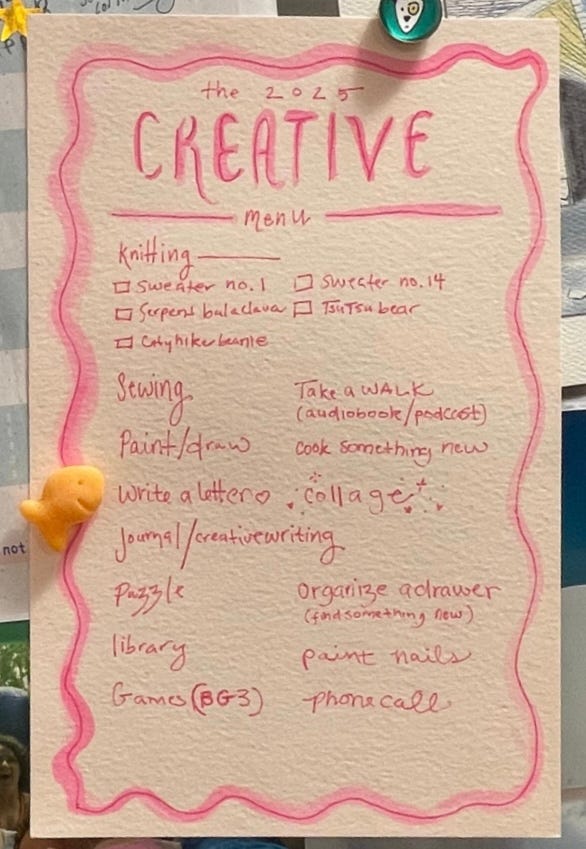 the 2025
CREATIVE
menu
Knitting
Sweater no. 1
Sweater no. 14
Serpent balaclava
TsuTsu bear
hike beanie
Sewing
Take a WALK
(audiobook/podcast)
Paint/draw
cook something new
write a letter
collage
Journal/creative writing
Puzzle
Organize a drawer
(find something new)
library
paint nails
Games (BG3)
phone call
not